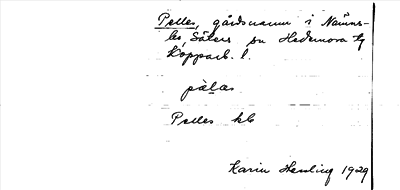 Pelles, gårdsnamn i Nämns-
bo, Säters sn Hedemora tg
Kopparb. l.
pàlas
Pelles kb
Karin Hessling 1929